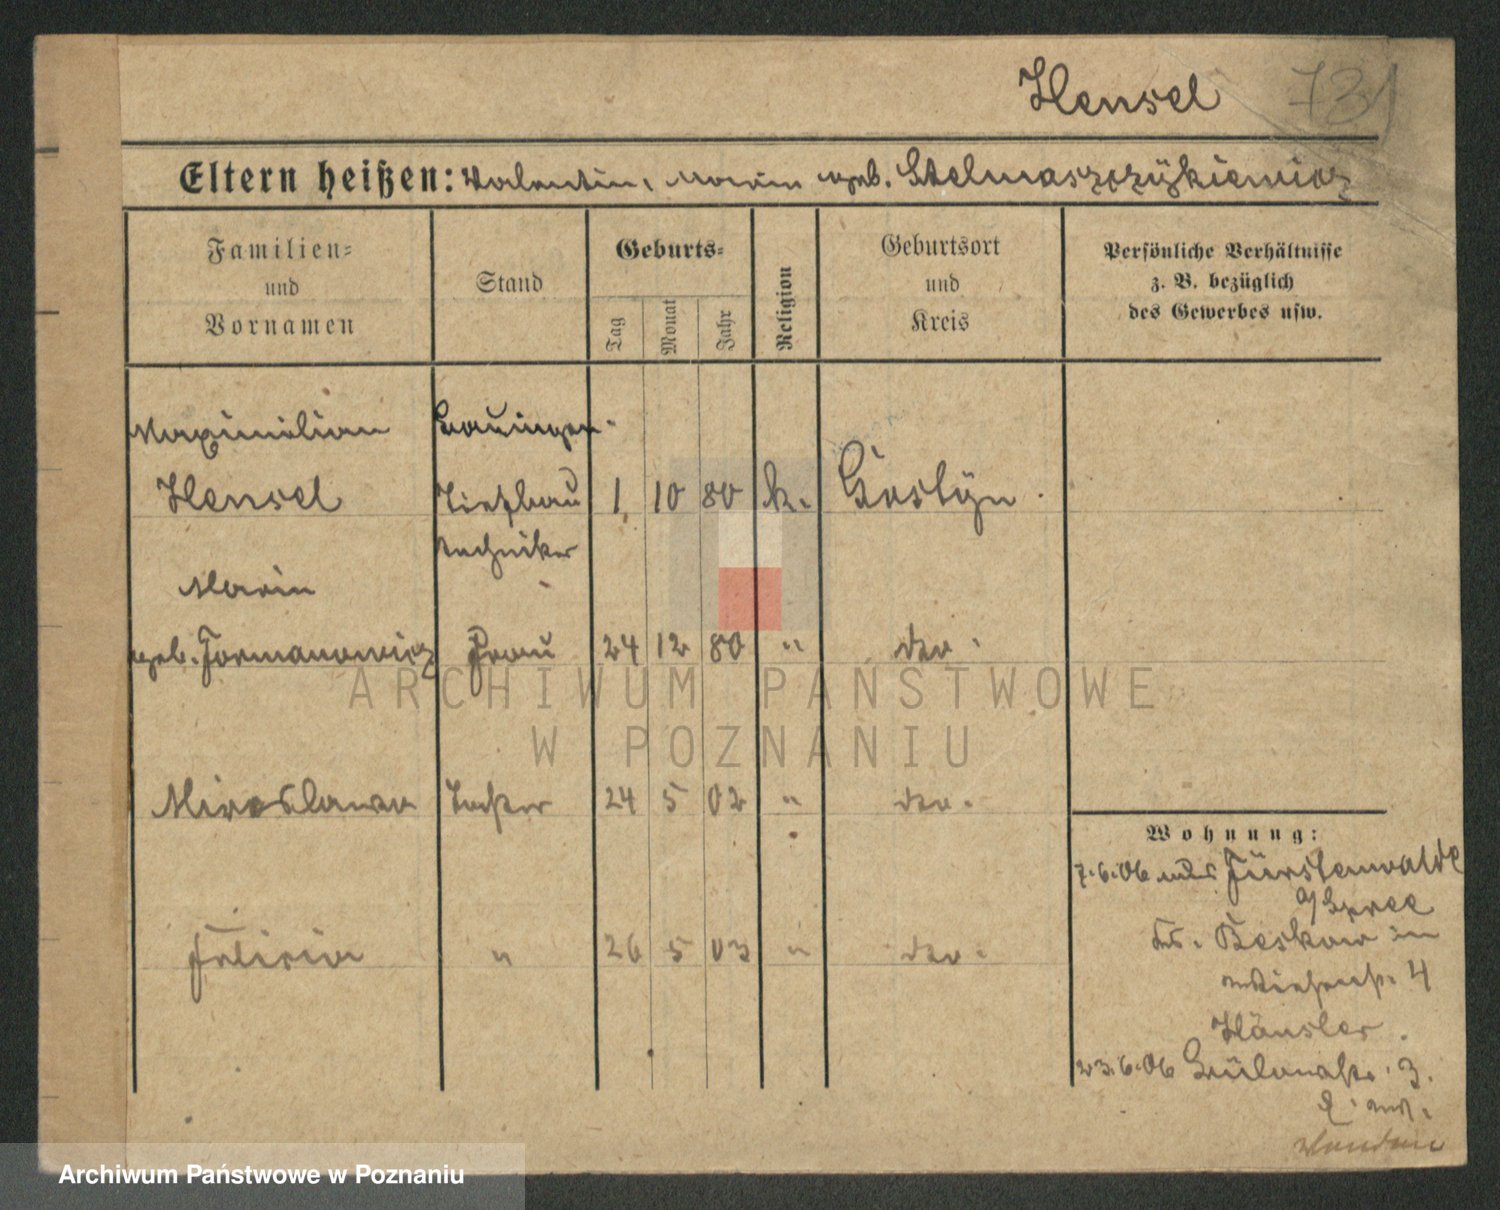 Hensel 731
Eltern heißen: Valentin, Maria geb. Stelmaszczÿkiewicz
Familien-
und
Vornamen
Stand
Geburts-
Tag
Monat
Jahr
Religion
Geburtsort
und
Kreis
Persönliche Verhältnisse
z. B. bezüglich
des Gewerbes usw.
Maximilian
Hensel
Bauingen.
Tiefbau
techniker
1. 10 80 k. Gostÿn
Maria
geb. Formanowicz Frau 24 12 80 " der
Miroslawa Tochter 24 5 02 " der.
Felicia " 26 5 03 " der.
Wohnung:
7.6.06 aus Fürstenwalde
a/Spree
Beskow in
4
Häusler.
23.6.06 3.
ARCHIWUM PAŃSTWOWE
W POZNANIU
Archiwum Państwowe w Poznaniu